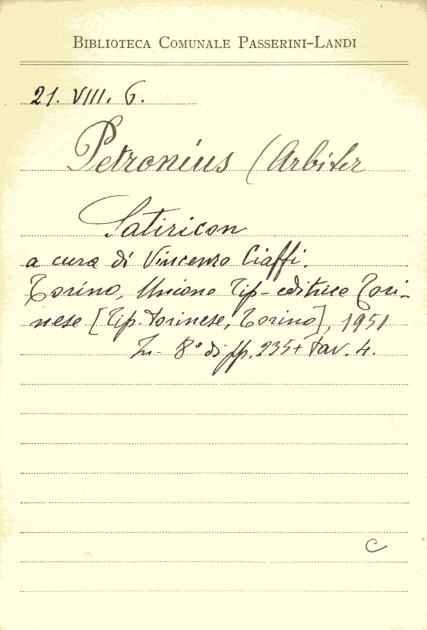 BIBLIOTECA COMUNALE PASSERINI-LANDI
21. VIII. 6.
Petronius (Arbiter
Satiricon
a cura di Vincenzo Ciaffi.
Torino, Unione Tip-editrice Tori-
nese [Tip. torinese, Torino], 1951
In- 8° di pp. 235+ tav. 4.
C